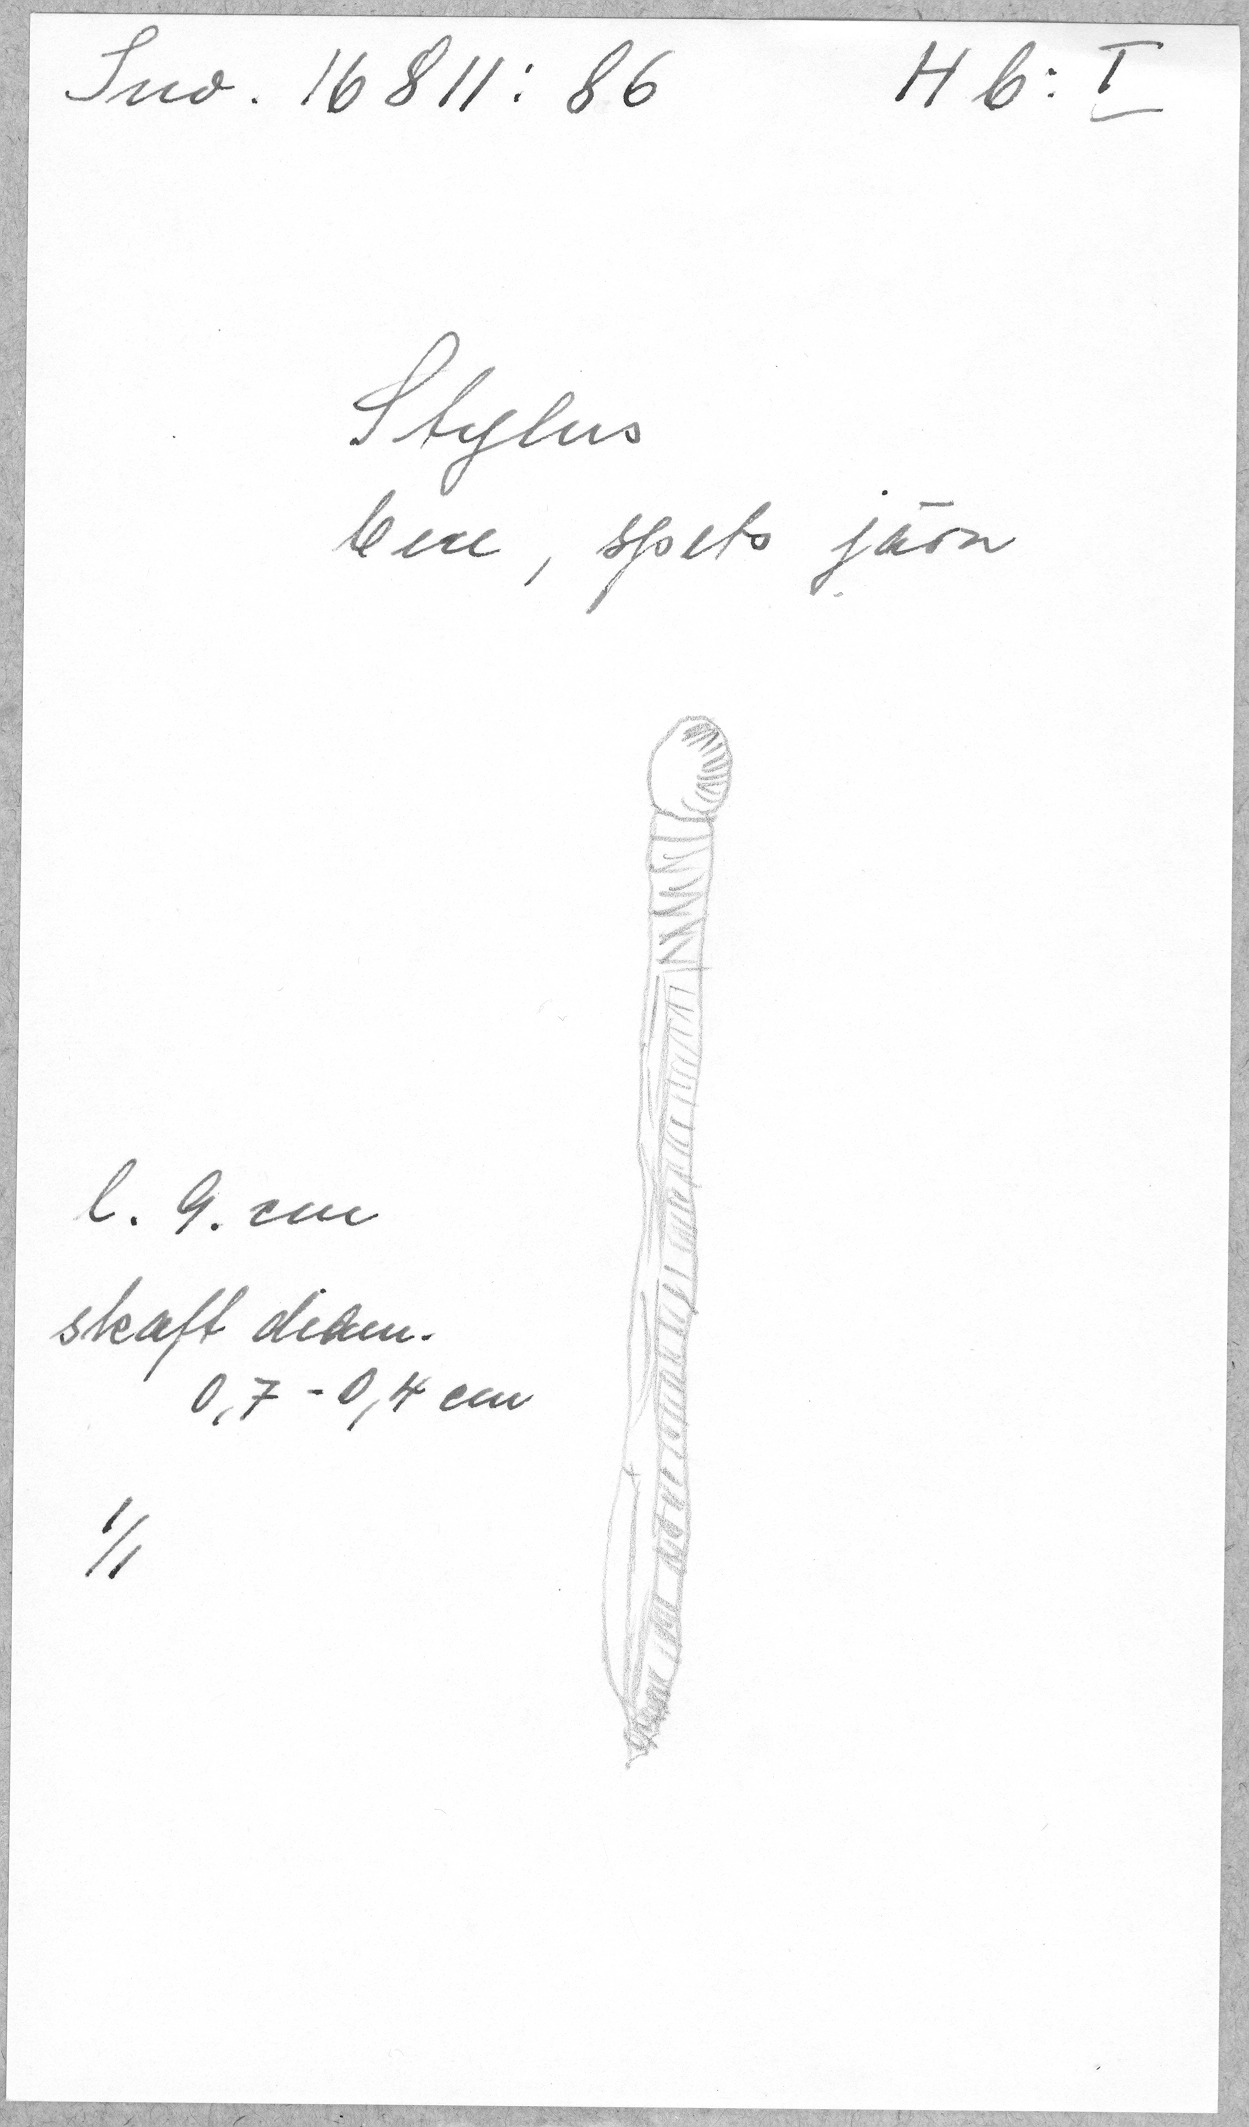 Inv. 16811:86 Hb: I
Stylus
ben, spets järn
l. 9. cm
skaft diam.
0,7 - 0,4 cm
1/1